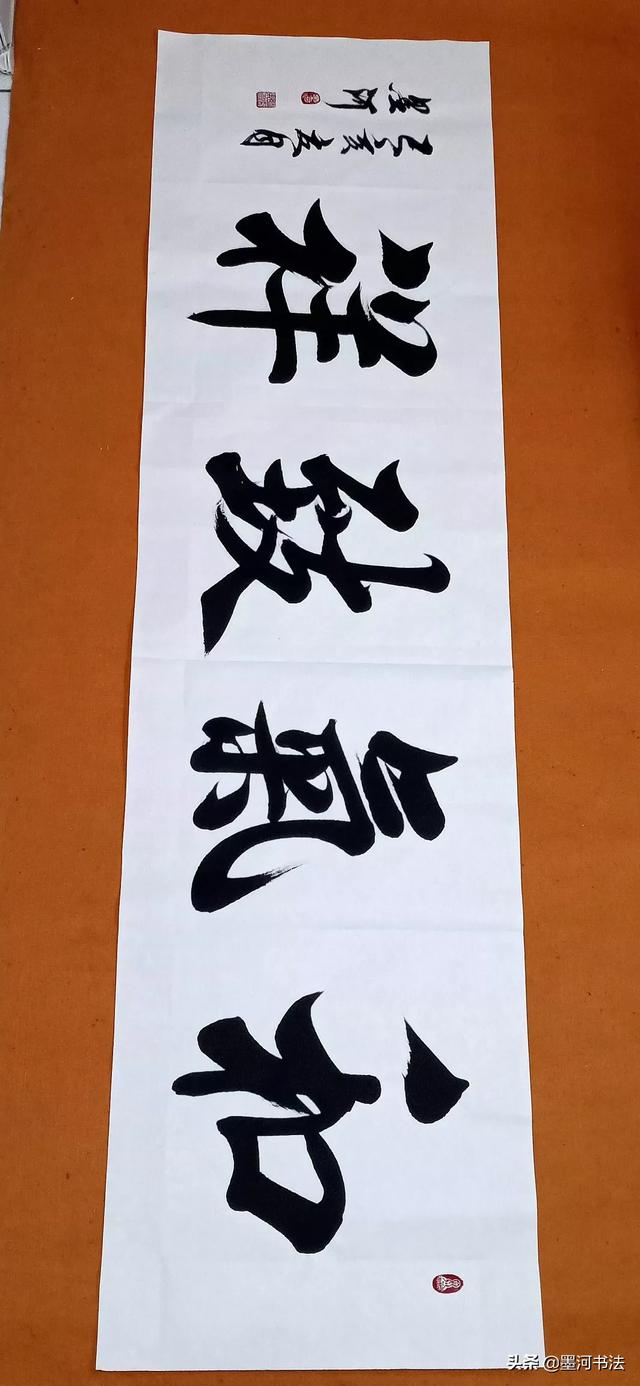 和氣致祥
己亥夏月
墨河
头条 @墨河书法